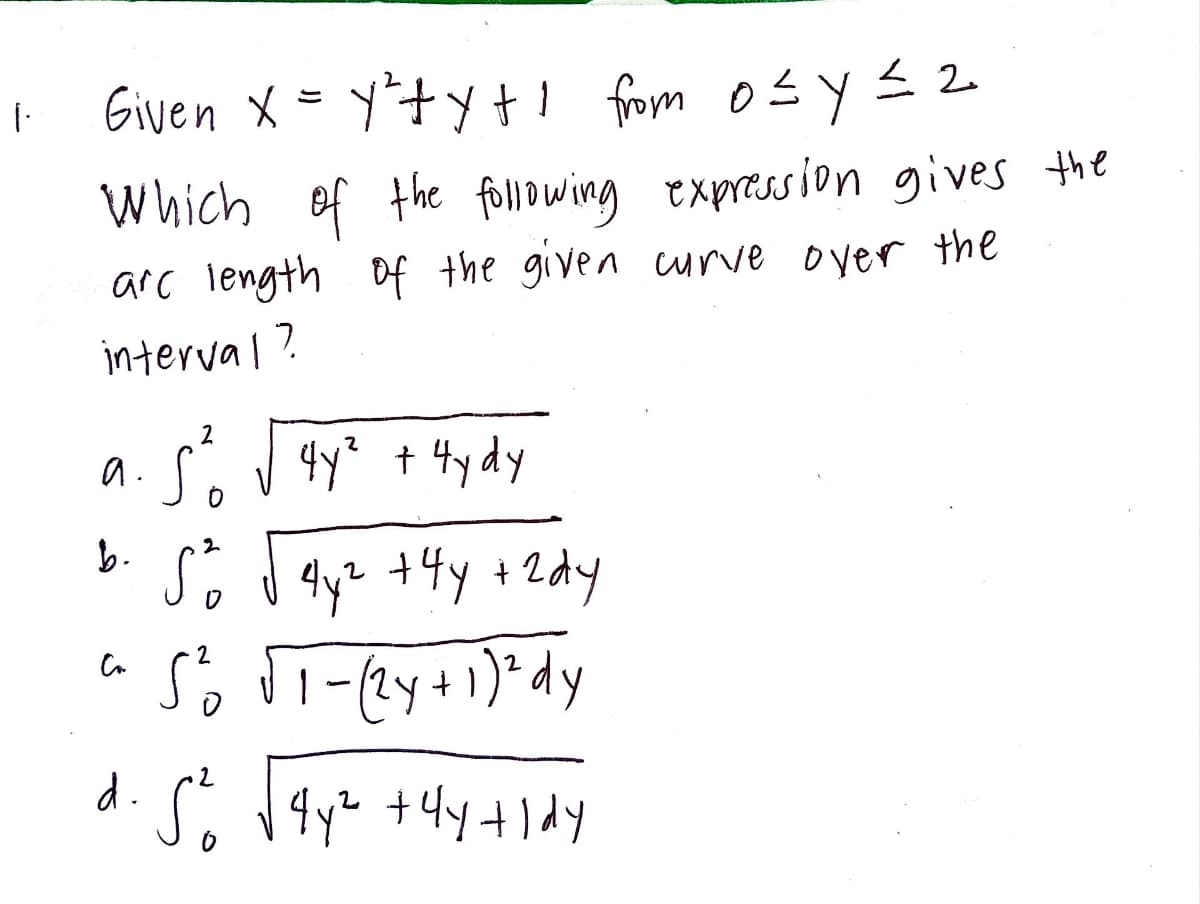 1. Given x = y²+y+1 from 0≤y≤2
Which of the following expression gives the
arc length of the given curve over the
interval?
a. ∫₀² √(4y² + 4y dy)
b. ∫₀² √(4y² + 4y + 2dy)
c. ∫₀² √(1-(2y+1)² dy)
d. ∫₀² √(4y² + 4y + 1dy)